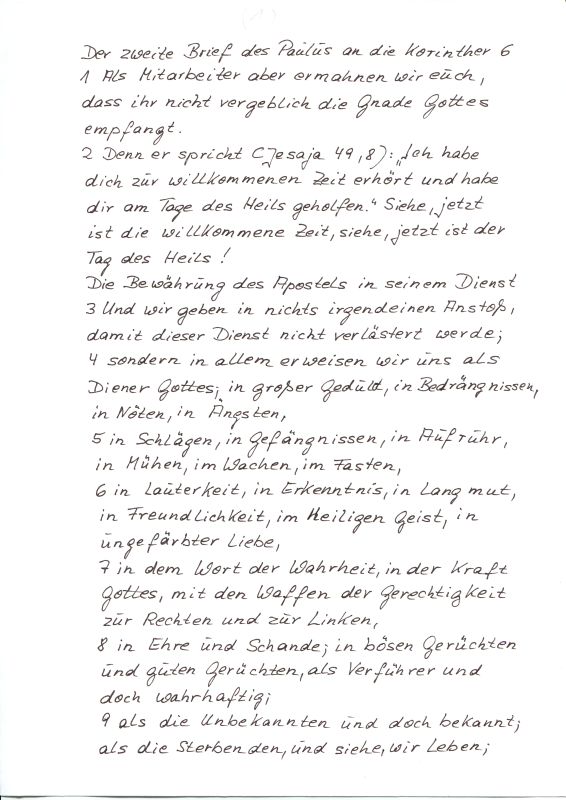 Der zweite Brief des Paulus an die Korinther 6
1 Als Mitarbeiter aber ermahnen wir euch,
dass ihr nicht vergeblich die Gnade Gottes
empfangt.
2 Denn er spricht (Jesaja 49,8): „Ich habe
dich zur willkommenen Zeit erhört und habe
dir am Tage des Heils geholfen." Siehe, jetzt
ist die willkommene Zeit, siehe, jetzt ist der
Tag des Heils!
Die Bewährung des Apostels in seinem Dienst
3 Und wir geben in nichts irgendeinen Anstoß,
damit dieser Dienst nicht verlästert werde;
4 sondern in allem erweisen wir uns als
Diener Gottes; in großer Geduld, in Bedrängnissen,
in Nöten, in Ängsten,
5 in Schlägen, in Gefängnissen, in Aufruhr,
in Mühen, im Wachen, im Fasten,
6 in Lauterkeit, in Erkenntnis, in Langmut,
in Freundlichkeit, im Heiligen Geist, in
ungefärbter Liebe,
7 in dem Wort der Wahrheit, in der Kraft
Gottes, mit den Waffen der Gerechtigkeit
zur Rechten und zur Linken,
8 in Ehre und Schande; in bösen Gerüchten
und guten Gerüchten, als Verführer und
doch wahrhaftig;
9 als die Unbekannten und doch bekannt;
als die Sterbenden, und siehe, wir leben;